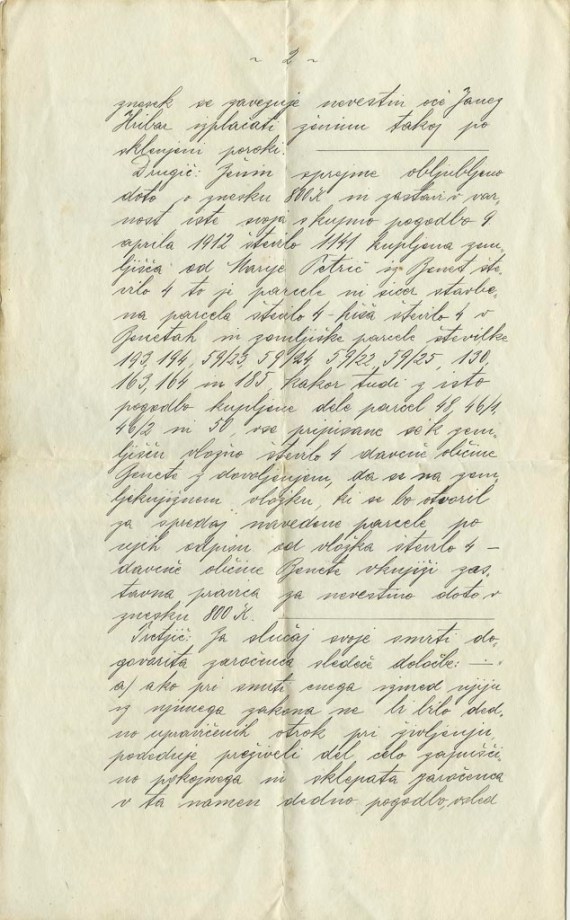 ~ 2 ~
znesek se zavezuje nevestin oče Janez
Hribar izplačati ženinu takoj po
sklenjeni poroki.
Drugič: Ženin sprejme obljubljeno
doto v znesku 800 K in zastavi v var,
nost iste svoja s kupno pogodbo 9
aprila 1912 število 1141 kupljena zem,
ljišča od Marije Petrič iz Benet šte,
vilo 4 to je parcele in sicer stavbe,
na parcela število 4 - hiša število 4 v
Benetah in zemljiške parcele številke
193, 194, 59/23, 59/24, 59/22, 59/25, 130,
163, 164 in 185, kakor tudi z isto
pogodbo kupljene dele parcel 48, 46/1,
46/2 in 50 vse pripisane sek zem,
ljišču vložno število 4 davčne občine
Benete z dovoljenjem, da se na zem,
ljeknjižnem vložku, ki se bo otvoril
za spredaj navedene parcele po
njih odpisu od vložka število 4 –
davčne občine Benete vknjiži zas,
tavna pravica za nevestino doto v
znesku 800 K.
Tretjič: Za slučaj svoje smrti do,
govorita zaročenca sledeče določbe: —
a) ako pri smrti enega izmed njiju
iz njunega zakona ne bi bilo ded,
no upravičenih otrok pri življenju,
podeduje preživeli del celo zapušči,
no pokojnega in sklepata zaročenca
v ta namen dedno pogodbo, vsled